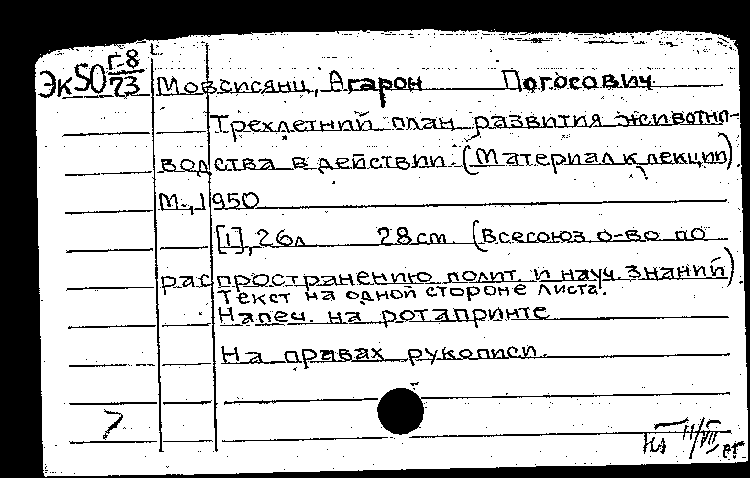 Эк50 Г-8/73 Мовсисянц, Агарон Погосович
Трехлетний план развития животно-
водства в действии. (Материал к лекции).
М., 1950
[1], 26л 28 cm. (Всесоюз. о-во по
распространению полит. и науч. знаний).
Текст на одной стороне листа.
Напеч. на ротапринте
На правах рукописи.
7
II/VII